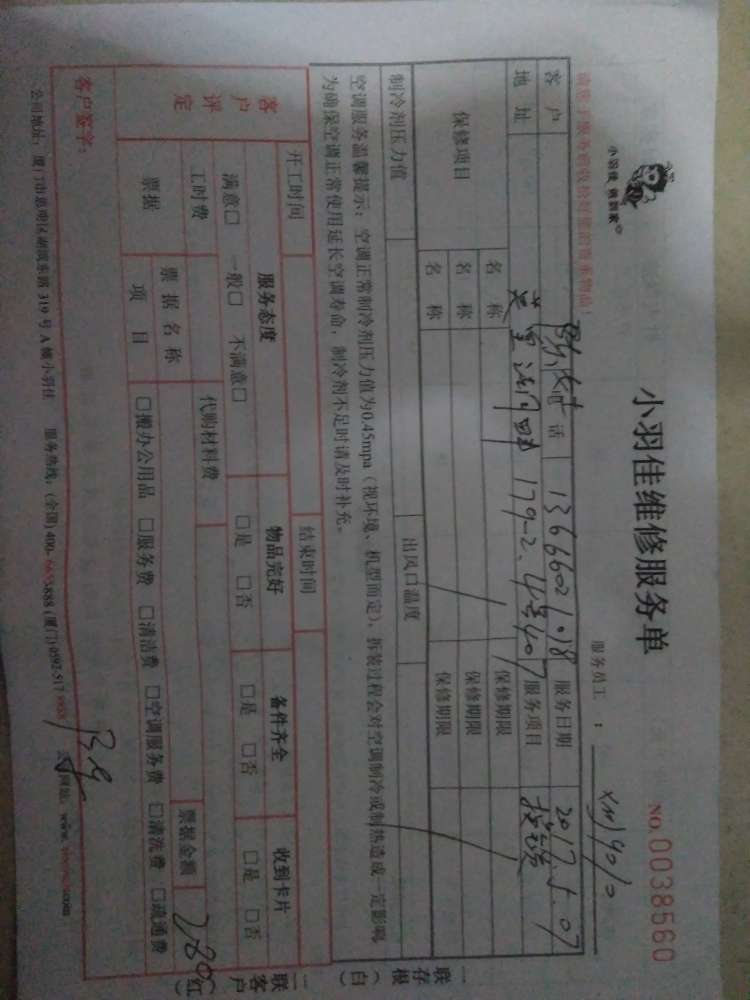 小羽佳 黄到家
小羽佳维修服务单
NO.0038560
请您于服务前收拾好您的贵重物品！
服务员工：XMJ4010
客户 电话 13666021018 服务日期 2017.5.07
地址 179-2.4号407 服务项目
保修项目 名称 保修期限
名称 保修期限
名称 保修期限
制冷剂压力值 出风口温度
空调服务温馨提示：空调正常制冷剂压力值为0.45mpa（视环境、机型而定），拆装过程会对空调制冷或制热造成一定影响，
为确保空调正常使用延长空调寿命，制冷剂不足时请及时补充。
开工时间 结束时间
客户评定 服务态度 物品完好 备件齐全 收到卡片
满意□ 一般□ 不满意□ □是 □否 □是 □否 □是 □否
工时费 代购材料费
票据 票据名称 票据金额 280
项目 □搬办公用品 □服务费 □清洁费 □空调服务费 □清洗费 □疏通费
客户签字：
公司地址：厦门市思明区湖滨东路319号A幢小羽佳 服务热线：(全国)400-6
一存根（白）联
二客户（红）联